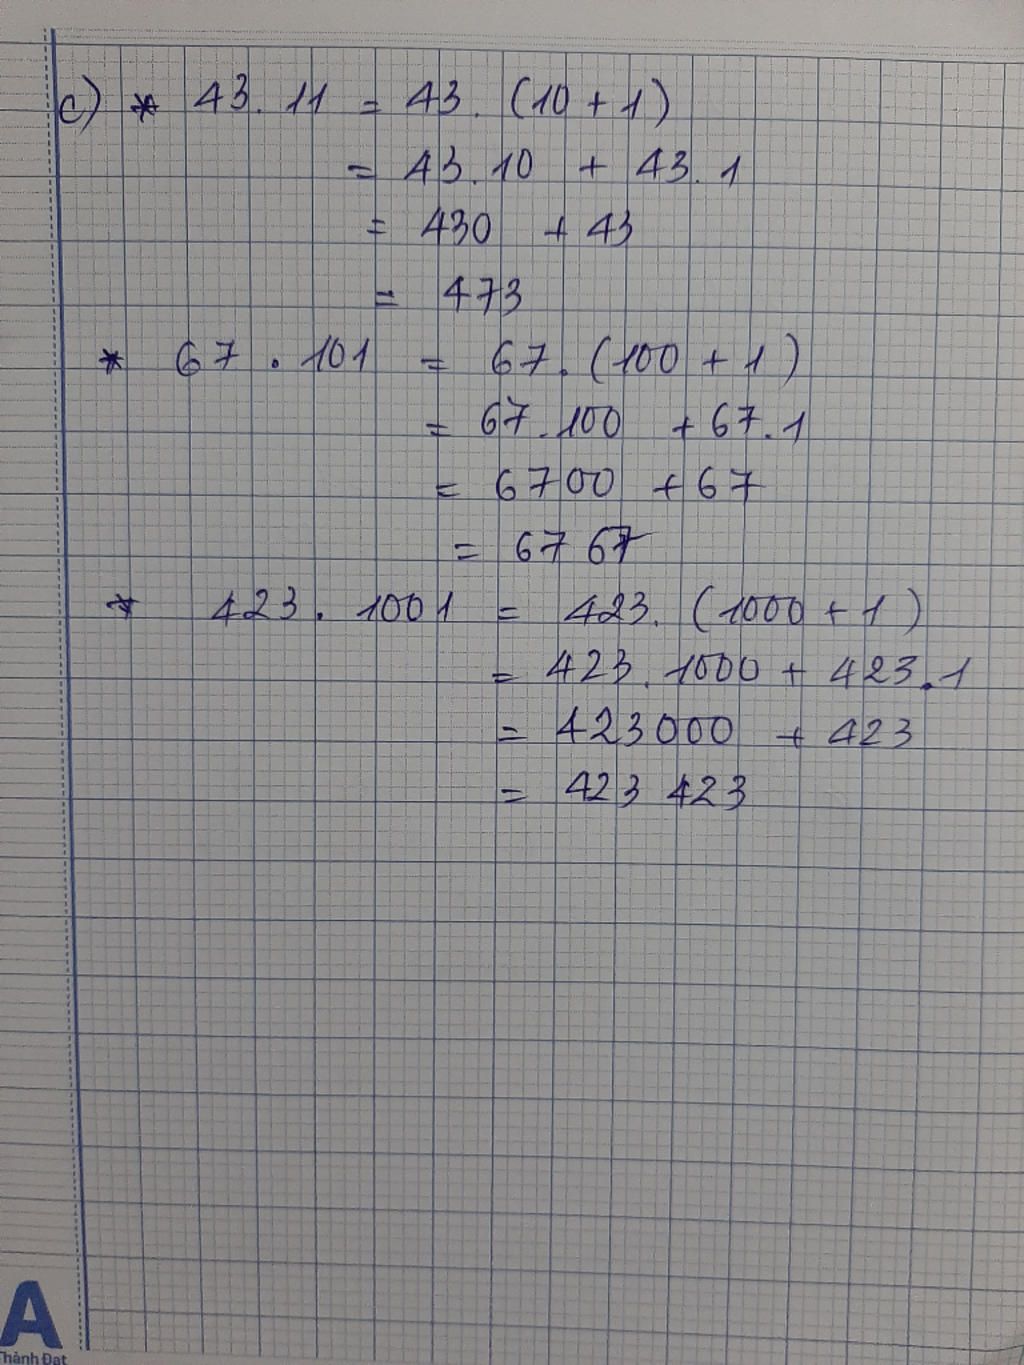 c) * 43. 11 = 43. (10 + 1)
= 43.10 + 43.1
= 430 + 43
= 473
* 67 . 101 = 67. (100 + 1)
= 67.100 + 67.1
= 6700 + 67
= 67 67
* 423. 1001 = 423. (1000 + 1)
= 423. 1000 + 423.1
= 423000 + 423
= 423 423
A
Thành Đạt